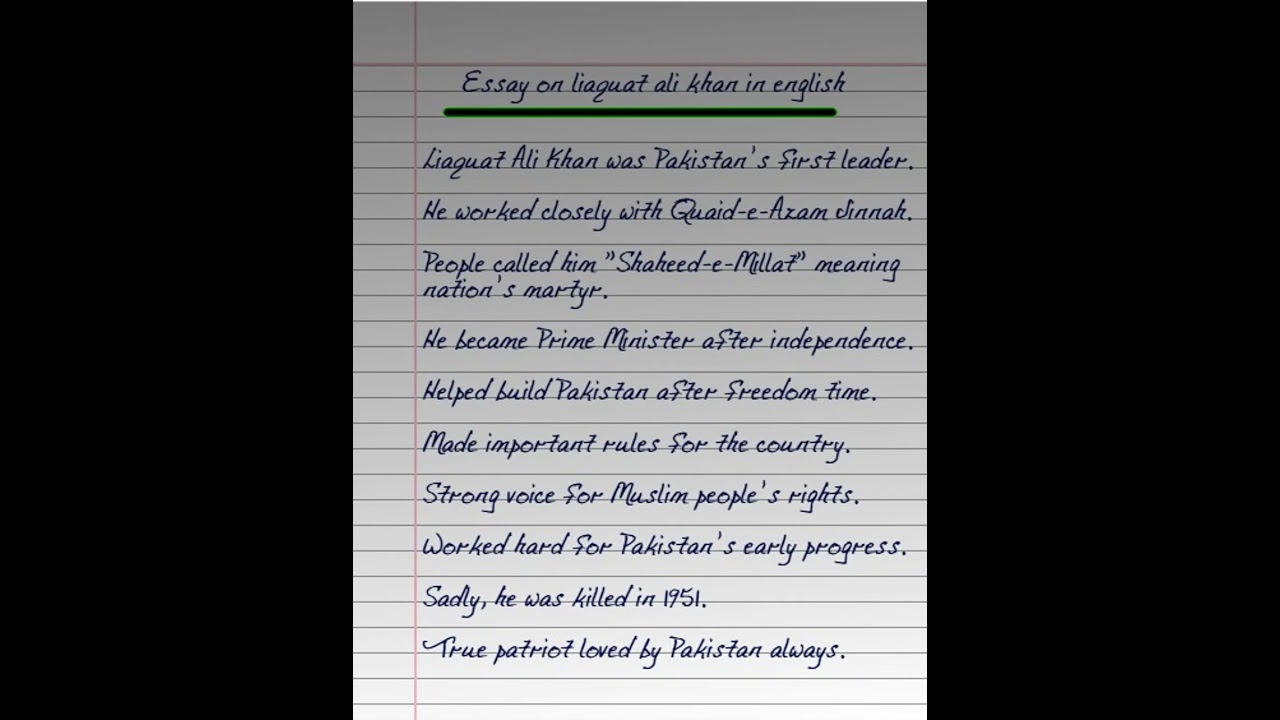 Essay on liaquat ali khan in english
Liaquat Ali Khan was Pakistan's first leader.
He worked closely with Quaid-e-Azam Jinnah.
People called him "Shaheed-e-Millat" meaning
nation's martyr.
He became Prime Minister after independence.
Helped build Pakistan after freedom time.
Made important rules for the country.
Strong voice for Muslim people's rights.
Worked hard for Pakistan's early progress.
Sadly, he was killed in 1951.
True patriot loved by Pakistan always.